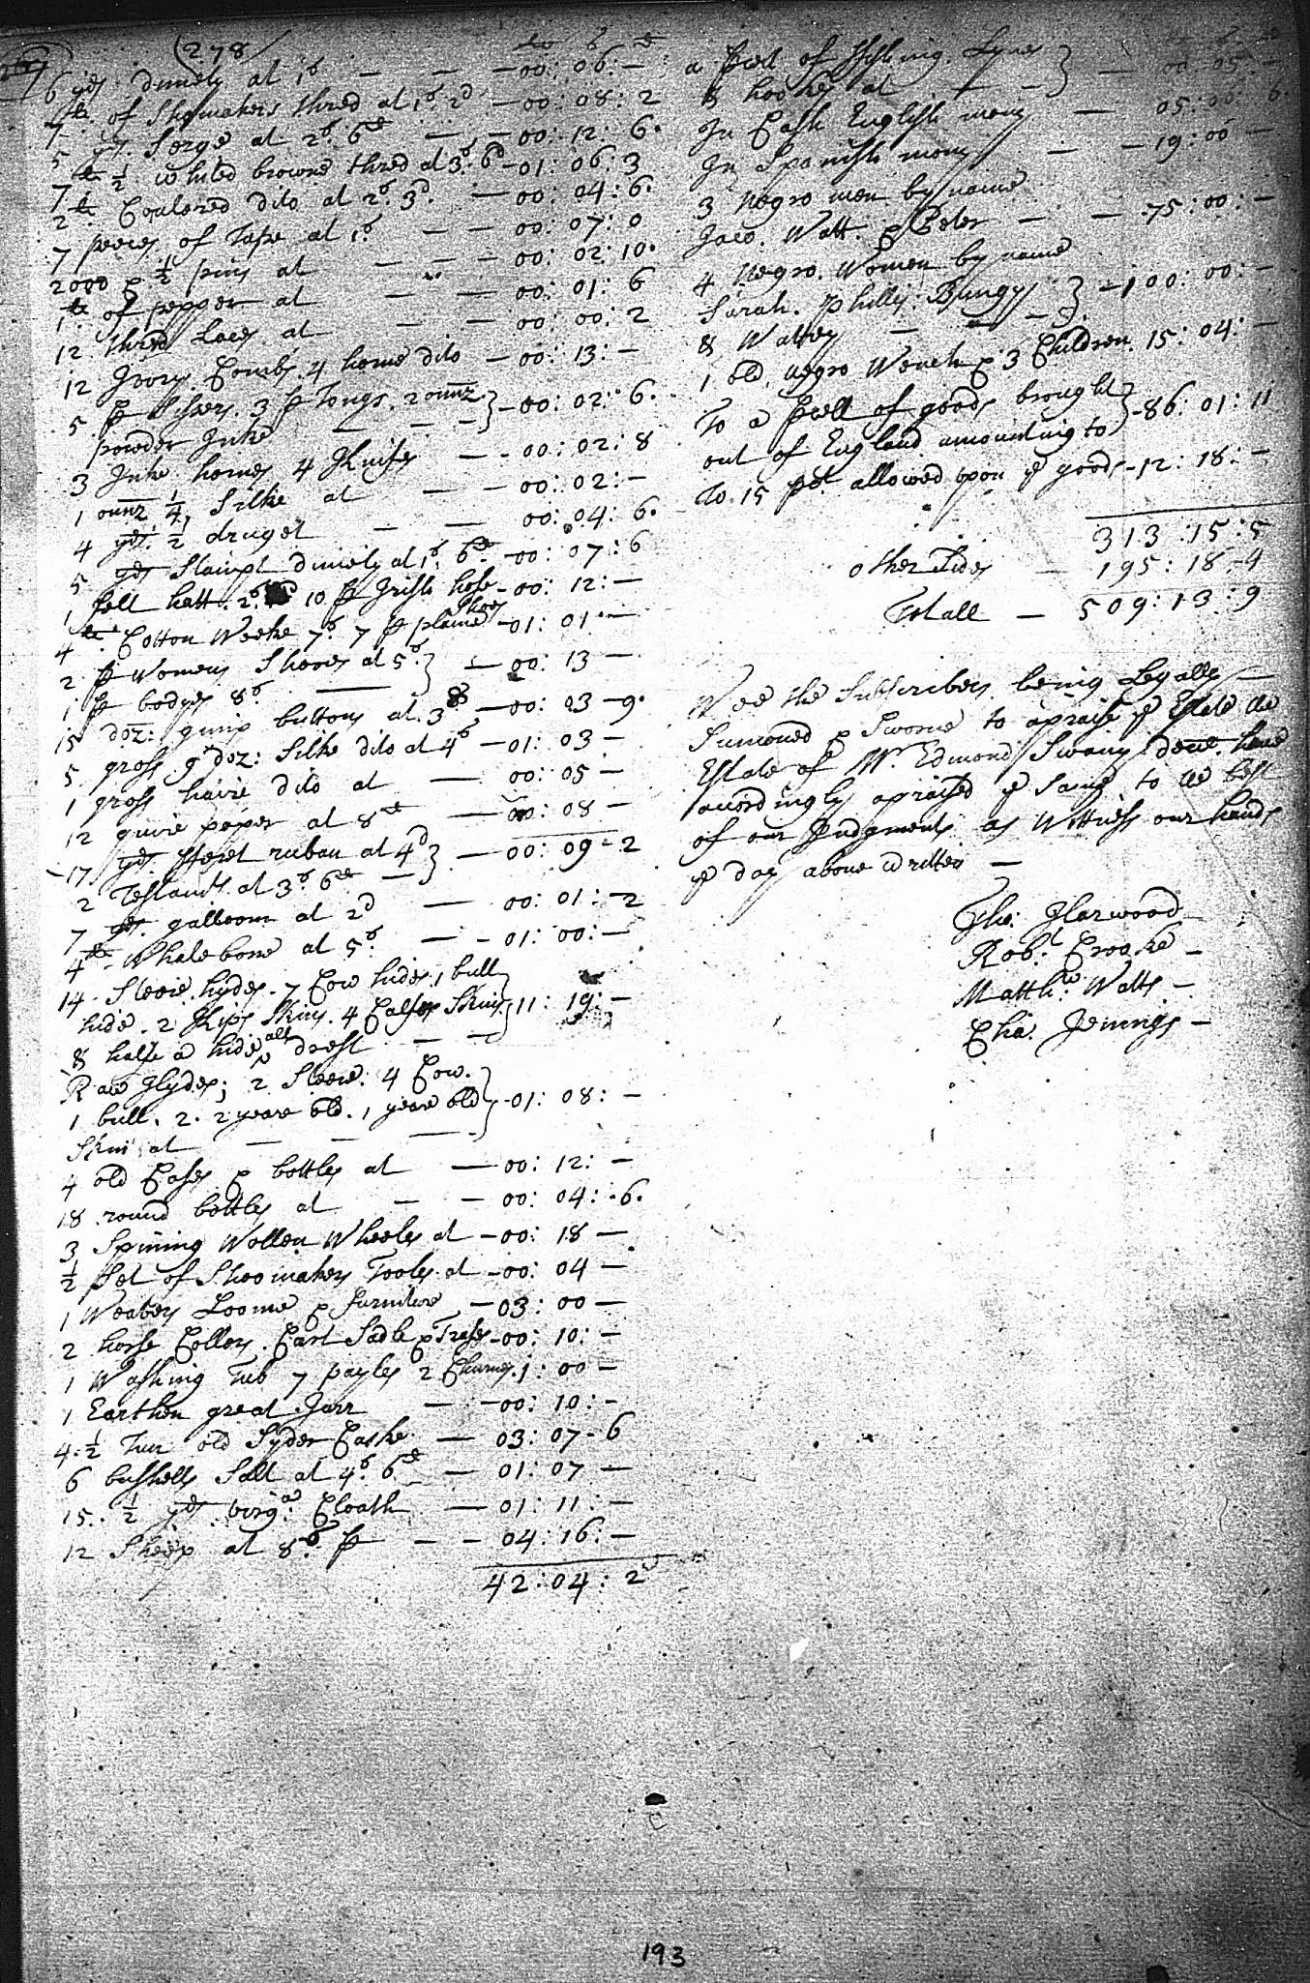 (278
267
lb s d
6 yds dimety at 1s — — — 00: 06: —
7 lb of Shomakers thred at 1s 2d — 00: 08: 2
5 yds Serge at 2s 6d — — 00: 12: 6
7 lb ½ whited browne thred at 3s 6d — 01: 06: 3
2 lb Coulored dito at 2s 3d — 00: 04: 6
7 peeces of Tape at 1s — — 00: 07: 0
2000 & ½ pins at — — — 00: 02: 10
1 lb of pepper at — — 00: 01: 6
12 thred Laces at — — 00: 00: 2
12 Ivory Combs 4 horne dito — 00: 13: —
5 p Sissers 3 p Tongs 2 ounz } — 00: 02: 6
powder Inke — — —
3 Inke hornes 4 Knifes — — 00: 02: 8
1 ounz ¼ Silke at — — 00: 02: —
4 yds ½ druget — — 00: 04: 6
5 yds Stampt dimety at 1s 6d — 00: 07: 6
1 fell hatt 2s 10 p Irish hose — 00: 12: —
4 lb Cotton Weeke 7s 7 p plaine Shoes — 01: 01 —
2 p Womens Shooes at 5s } — 00: 13 —
1 p bodyes 8s —
15 doz: gimp buttons at 3d — 00: 03 — 9
5 gross 9 doz: Silke dito at 4s — 01: 03 —
1 gross haire dito at — 00: 05 —
12 quire paper at 8d — 00: 08 —
17 yds fferet ruban at 4d } — 00: 09 - 2
2 at 3s 6d —
7 yds galloom at 2d — 00: 01: — 2
4 lb Whalebone at 5s — — 01: 00: —
14 Steere hydes 7 Cow hides 1 bull }
hide 2 Kips Skins 4 Calfes Skins } 11: 19: —
& halfe a hide all drest — —
Raw Hydes; 2 Steere 4 Cow }
1 bull 2. 2 yeare old 1 yeare old } — 01: 08: —
Skin at — — —
4 old Cases & bottles at — 00: 12: —
18 round bottles at — — 00: 04: 6
3 Spining Wollen Wheeles at — 00: 18 —
½ Set of Shoomakers Tooles at — 00: 04 —
1 Weavers Loome & furniture — 03: 00 —
2 horse Collors Cart Sadle & Treses — 00: 10: —
1 Washing Tub 7 payles 2 Churnes 1: 00 —
1 Earthen great Jarr — — 00: 10: —
4 ½ Tun old Syder Caske — 03: 07 - 6
6 busshells Salt at 4s 6d — 01: 07 —
15 ½ yds virga Cloath — 01: 11: —
12 Sheep at 8s p — — 04: 16: —
42: 04: 2
a pcel of ffishing Lynes }
& hookes at — — — 00: 05: —
In Cash English mony — 05: 06: 6
In Spanish mony — — 19: 00 —
3 Negro men by name
Jaco. Watt & Peter — — 75: 00: —
4 Negro Women by name
Sarah. Phillis: Bungy } — 100: 00: —
& Wattey — — —
1 old negro Wench & 3 Children 15: 04: —
To a pcell of goods brought } — 86: 01: 11
out of England amounting to
To 15 pct allowed upon ye goods — 12: 18: —
313: 15: 5
other Sides — 195: 18 - 4
Totall — 509: 13: 9
Wee the Subscribers being Legally —
Sumoned & Sworne to apraise ye Estate
Estate of Mr Edmond Swany decd have
accordingly apraised ye Same to ye best
of our Judgments as Wittness our hands
ye day above written —
Tho: Harwood
Robt Crooke —
Matthw Watts —
Cha. Jenings —
193